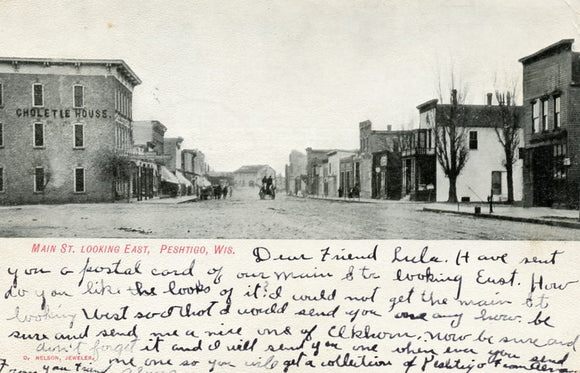 CHOLETTE HOUSE.
MAIN ST. LOOKING EAST, PESHTIGO, WIS.
Dear Friend Lula. I have sent
you a postal card of our main Str looking East. How
do you like the looks of it. I could not get the main St
looking West so I thot I would send you one any how. be
sure and send me a nice one of Elkhorn. Now be sure and
don't forget it and I will send you one when ever you send
me one so you will get a collection of Peshtigo
From your friend
O. NELSON, JEWELER.